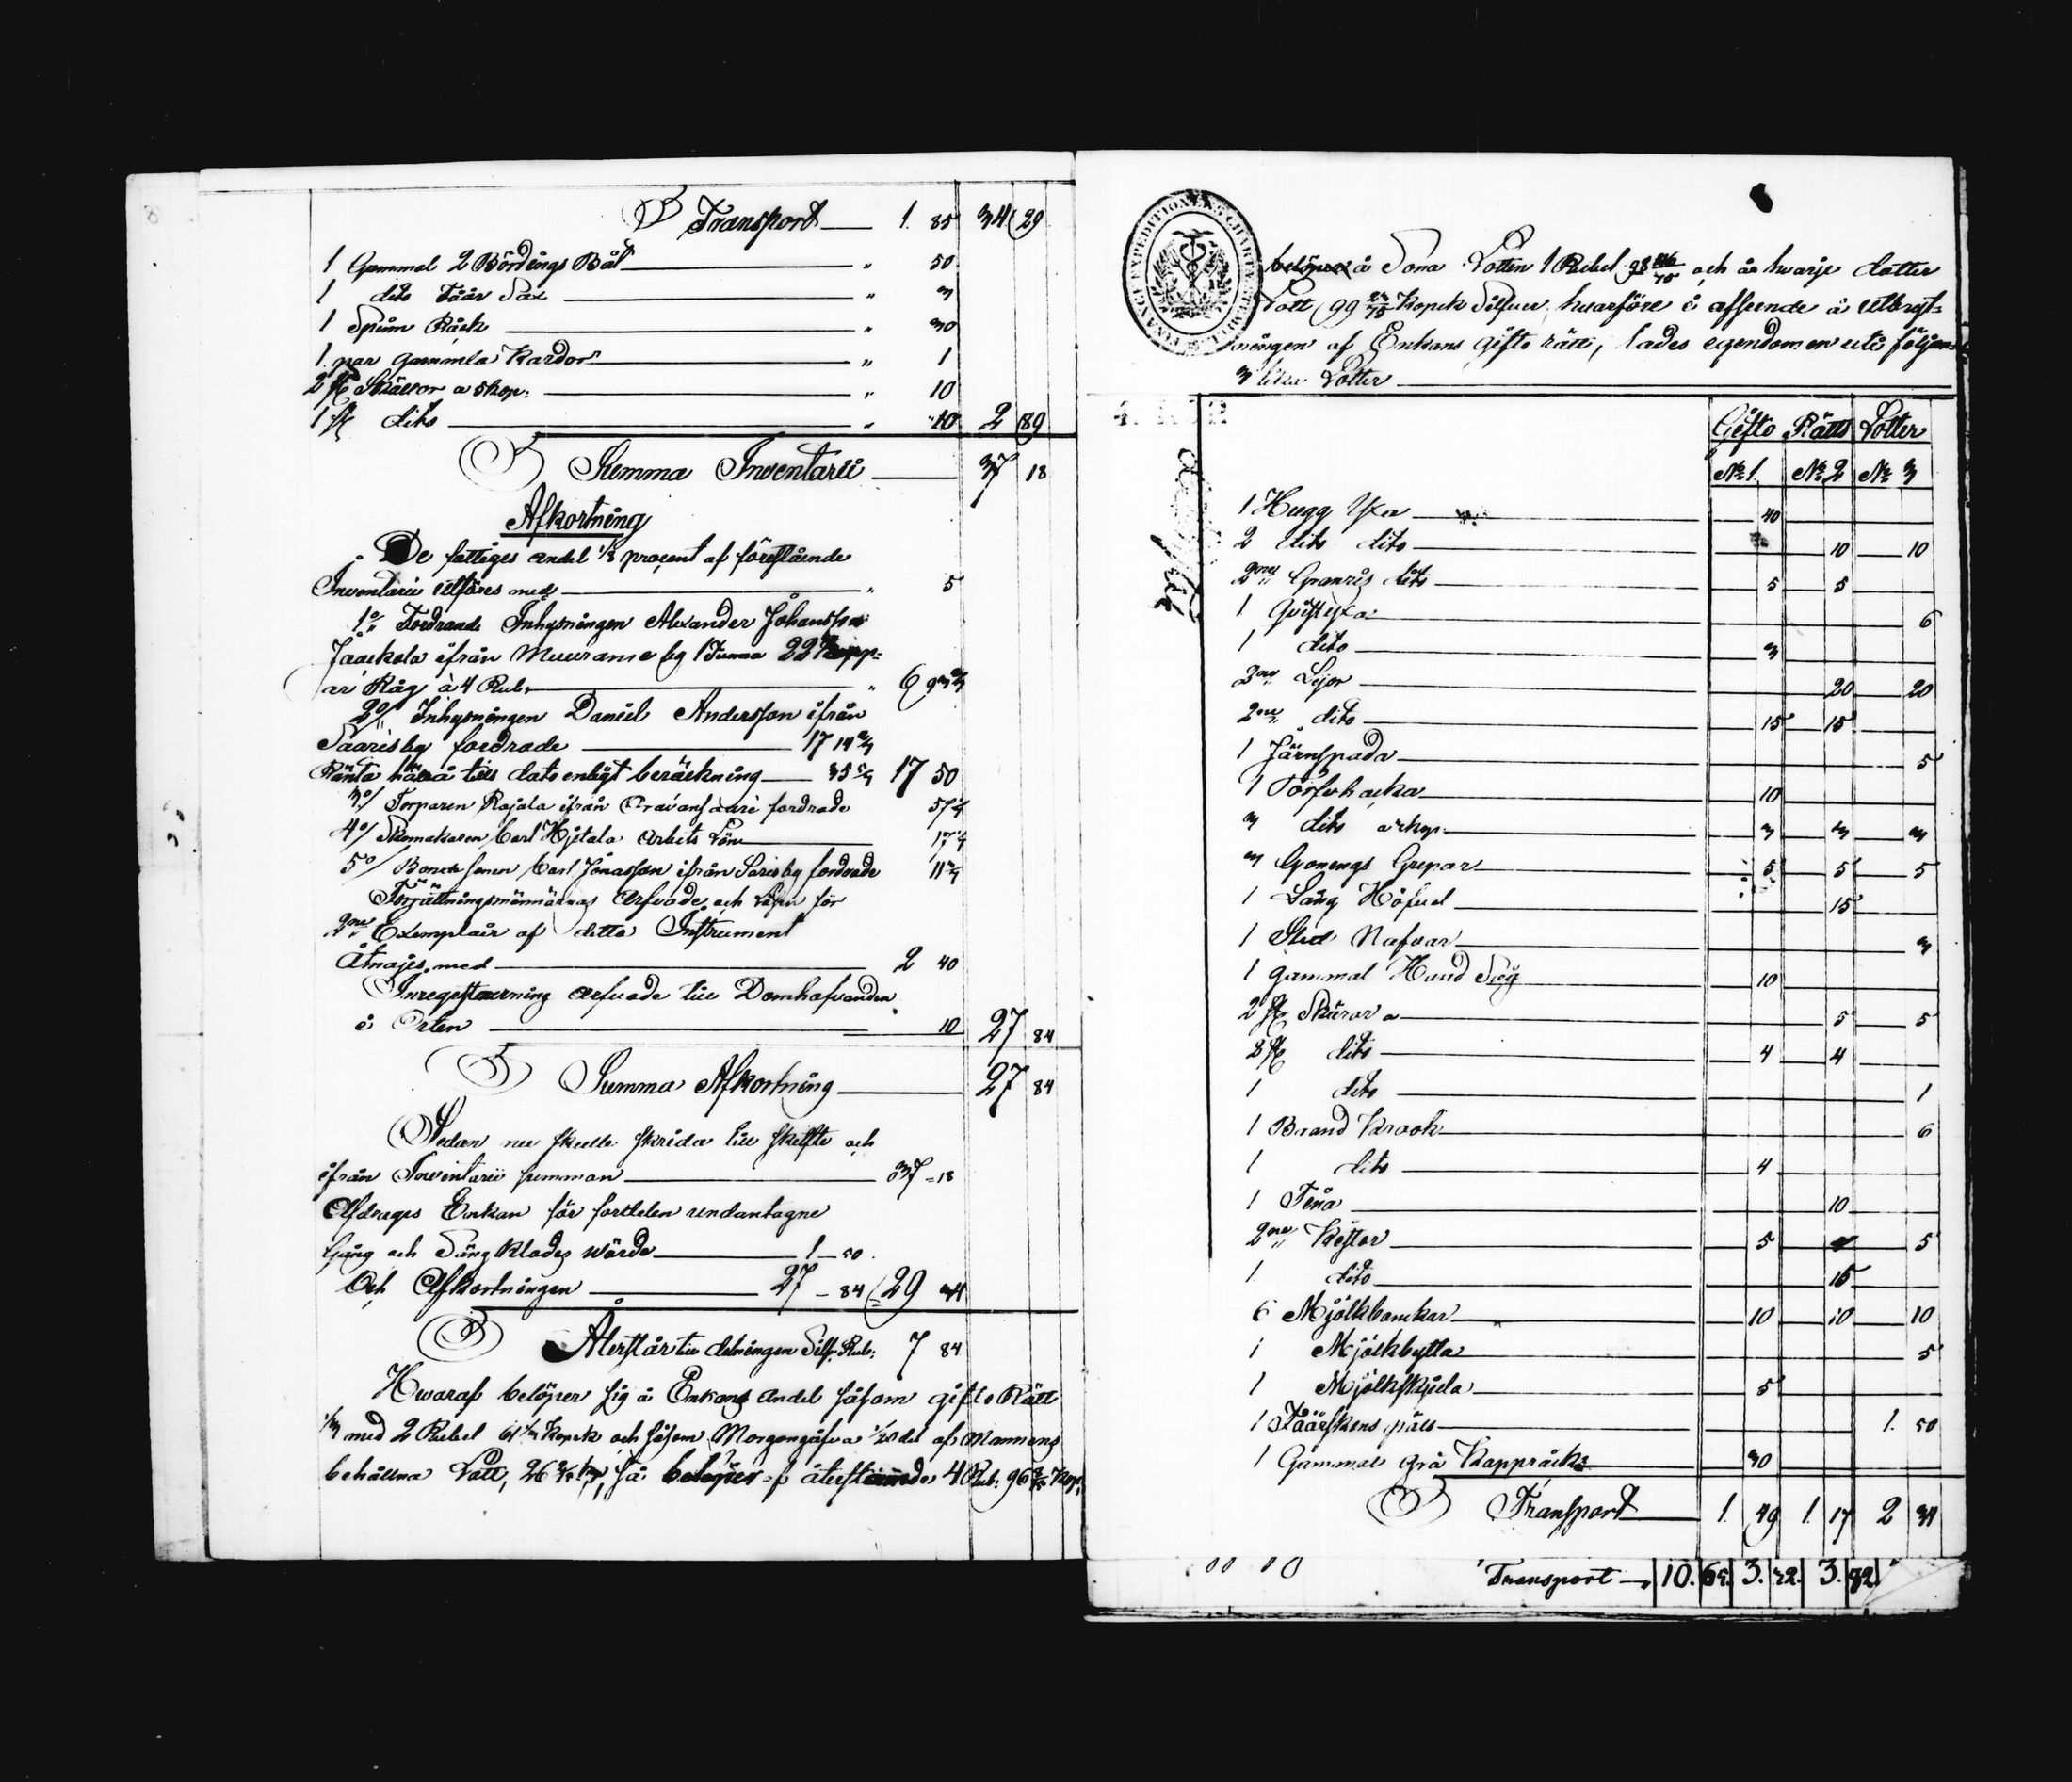 Transport 1. 85 34 29
1 Gammal 2 Bördings Båt " 50
1 dito Fåår Sax " 3
1 Spinn Råck " 30
1 par gammla Kardor " 1
2 st Skållor a 5 kop: " 10
1 st dito " 10 2 89
Summa Inventarii 37 18
Afkortning
De fattiges andel 1/8 procent af föreslående
Inventarii utföres med " 5
1o Fordrande Inhysningen Alexander Johansson
Jaackola ifrån Muurame by 1 Tunna 22 Kapp=
ar Råg à 4 Rub: " 6 93
2o/ Inhysningen Daniel Andersson ifrån
Saarisby fordrade 17 14
Ränta härå till dato enligt beräckning 35 17 50
3o/ Torparen Rajala ifrån fordrade 57
4o/ Skomakaren Carl Hjetala Arbets Lön 17
5o/ Bonde Sonen Carl Jonasson ifrån Sarisby fordrade 11
Förrättningsmännärnas Arfvode och Lösen för
2ne Exemplair af detta Instrument
Åtnajes med 2 40
Inregistaerning arfvode till Domhafvanden
i Orten 10 27 84
Summa Afkortning 27 84
Sedan nu skulle skrida till skifte och
ifrån Inventarii summan 37 = 18
Afdrages Enkan för fördelen undantagne
Gång och Säng Klädes wärde 1 — 50
Och Afkortningen 27 — 84 29 34
Återstår till delningen Silf. Rub: 7 84
Hwaraf belöper sig å Enkans andel såsom gifto Rätt
1/3 med 2 Rubel 61 1/3 Kopek och såsom Morgongåfva 1/20 del af Mannens
behållna Lott, 26 så belöper af återstående 4 Rub: 96 Kop:
belöper å Sona Lotten 1 Rubel 98 och å hvarje dotter
Lott 99 Kopek Silfver, hvarföre i afseende å utbryt=
ningen af Enkans gifto rätt, lades egendomen uti följande
3 lika Lotter
Gifto Rätts Lotter
No 1. No 2 No 3
1 Hugg Yxa 40
2 dito dito 10 10
2ne Granris dito 5 5
1 Qvist yxa 6
1 dito 3
2ne Lijor 20 20
2ne dito 15 15
1 Järnspada 5
1 Törfvhacka 10
3 dito a 3 kop: 3 3 3
3 Gönings Grepar 5 5 5
1 Lång Höfvel 15
1 Sled Nafvar 3
1 gammal Hand Såg 10
2 st Skäror a 5 5
2 st dito 4 4
1 dito 1
1 Brand Krook 6
1 dito 4
1 Tina 10
2ne Kistor 5 5
1 dito 15
6 Mjölkbunkar 10 10 10
1 Mjölkbytta 5
1 Mjölkskjula 5
1 Fåårskins päls 1. 50
1 Gammal grå Kappråck 30
Transport 1. 49 1. 17 2 34
Transport 10. 65. 3. 42. 3. 82.